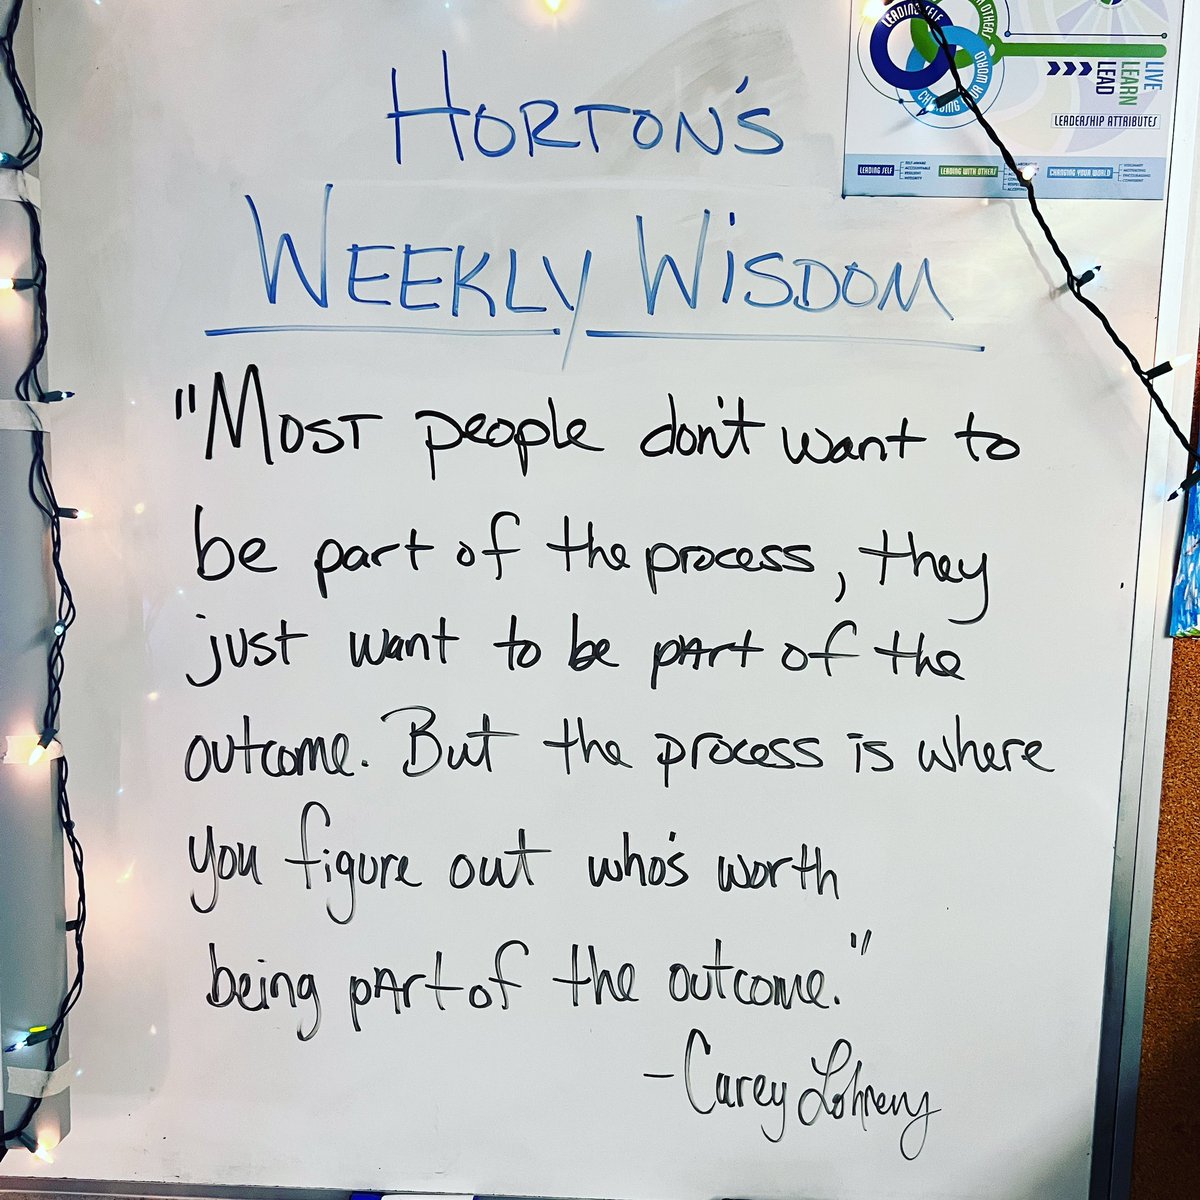 HORTON'S
WEEKLY WISDOM
"MOST people don't want to
be part of the process, they
just want to be part of the
outcome. But the process is where
you figure out who's worth
being part of the outcome."
- Carey Lohrenz
LEADING SELF
CHANGING YOUR WORLD
LIVE
LEARN
LEAD
LEADERSHIP ATTRIBUTES
LEADING SELF
SELF-AWARE
ACCOUNTABLE
RESILIENT
INTEGRITY
LEADING WITH OTHERS
CHANGING YOUR WORLD
VISIONARY
MOTIVATING
ENCOURAGING
CONFIDENT